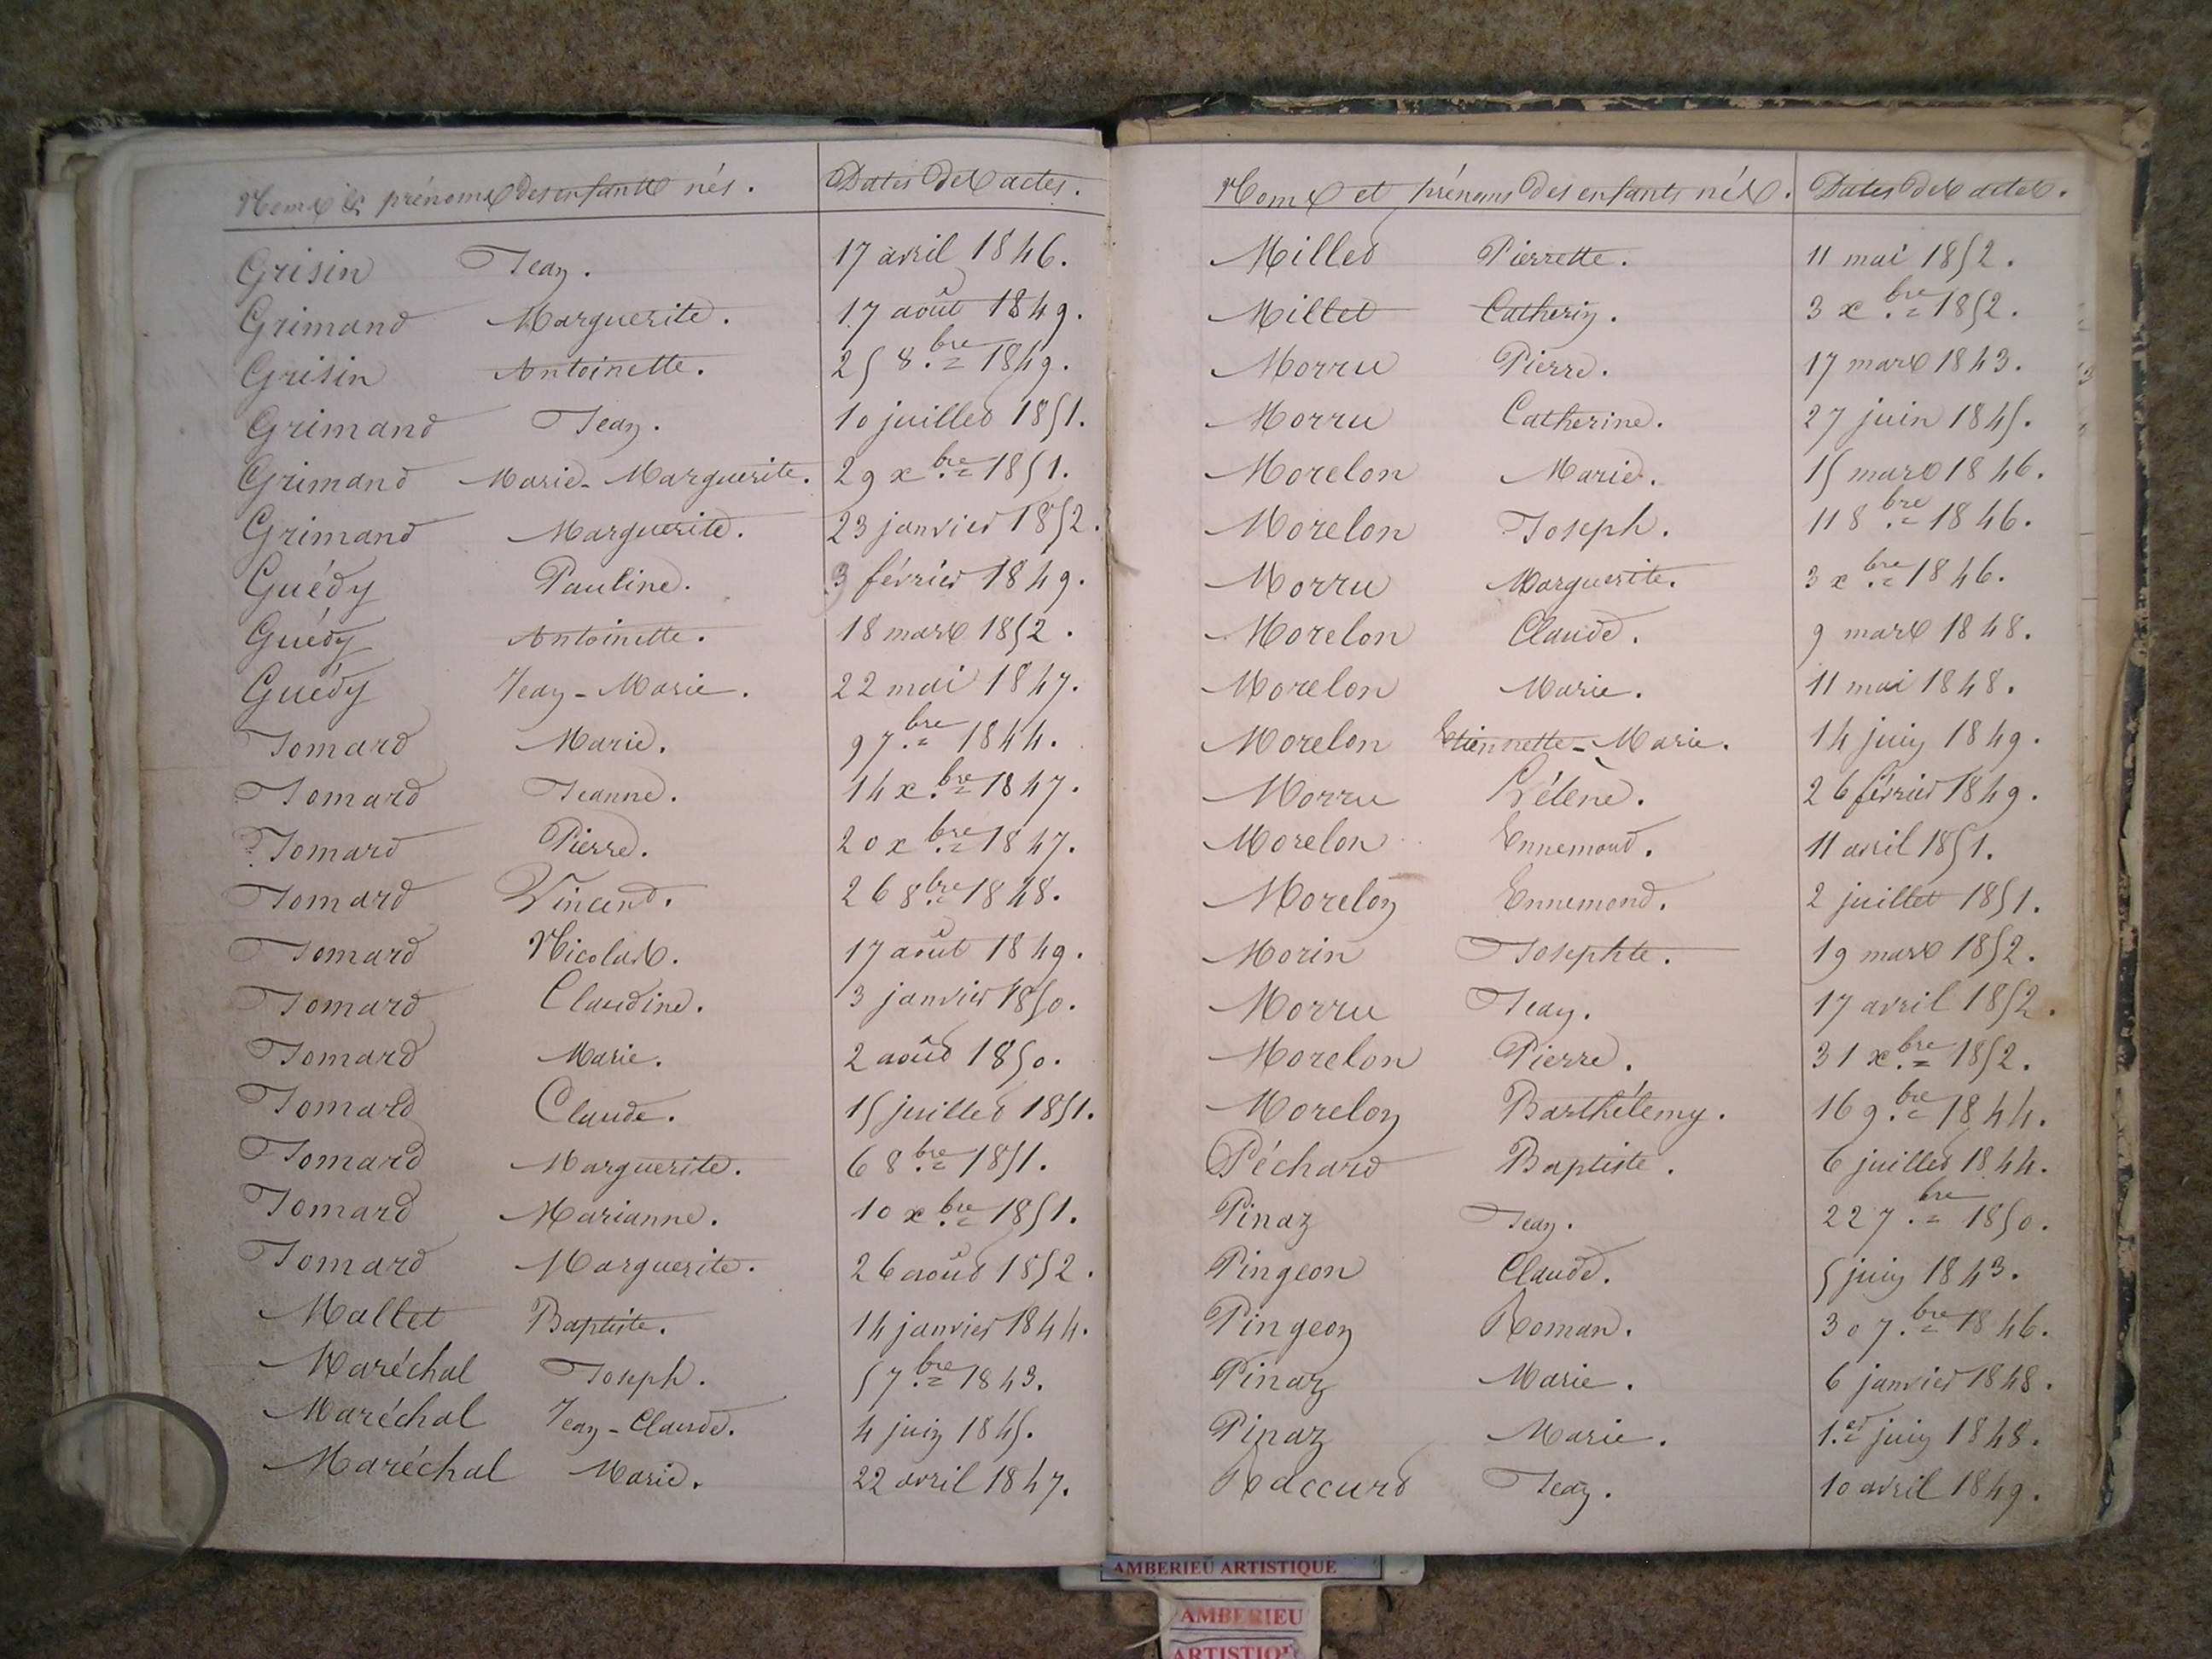 Noms et prénoms des enfants nés. Dates des actes.
Grisin Jean. 17 avril 1846.
Grimand Marguerite. 17 août 1849.
Grisin Antoinette. 25 8.bre 1849.
Grimand Jean. 10 juillet 1851.
Grimand Marie-Marguerite. 29 x.bre 1851.
Grimand Marguerite. 23 janvier 1852.
Guédy Pauline. 3 février 1849.
Guédy Antoinette. 18 mars 1852.
Guédy Jean-Marie. 22 mai 1847.
Jomard Marie. 9 7.bre 1844.
Jomard Jeanne. 14 x.bre 1847.
Jomard Pierre. 20 x.bre 1847.
Jomard Vincent. 26 8.bre 1848.
Jomard Nicolas. 17 août 1849.
Jomard Claudine. 3 janvier 1850.
Jomard Marie. 2 août 1850.
Jomard Claude. 15 juillet 1851.
Jomard Marguerite. 6 8.bre 1851.
Jomard Marianne. 10 x.bre 1851.
Jomard Marguerite. 26 août 1852.
Mallet Baptiste. 14 janvier 1844.
Maréchal Joseph. 5 7.bre 1843.
Maréchal Jean-Claude. 4 juin 1845.
Maréchal Marie. 22 avril 1847.
Noms et prénoms des enfants nés. Dates des actes.
Millet Pierrette. 11 mai 1852.
Millet Catherin. 3 x.bre 1852.
Morru Pierre. 17 mars 1843.
Morru Catherine. 27 juin 1845.
Morelon Marie. 15 mars 1846.
Morelon Joseph. 11 8.bre 1846.
Morru Marguerite. 3 x.bre 1846.
Morelon Claude. 9 mars 1848.
Morelon Marie. 11 mai 1848.
Morelon Etiennette-Marie. 14 juin 1849.
Morru Hélène. 26 février 1849.
Morelon Ennemond. 11 avril 1851.
Morelon Ennemond. 2 juillet 1851.
Morin Josephte. 19 mars 1852.
Morru Jean. 17 avril 1852.
Morelon Pierre. 31 x.bre 1852.
Morelon Barthélemy. 16 9.bre 1844.
Péchard Baptiste. 6 juillet 1844.
Pinaz Jean. 22 7.bre 1850.
Pingeon Claude. 5 juin 1843.
Pingeon Roman. 30 7.bre 1846.
Pinaz Marie. 6 janvier 1848.
Pinaz Marie. 1.er juin 1848.
Raccurd Jean. 10 avril 1849.
AMBERIEU ARTISTIQUE
AMBERIEU